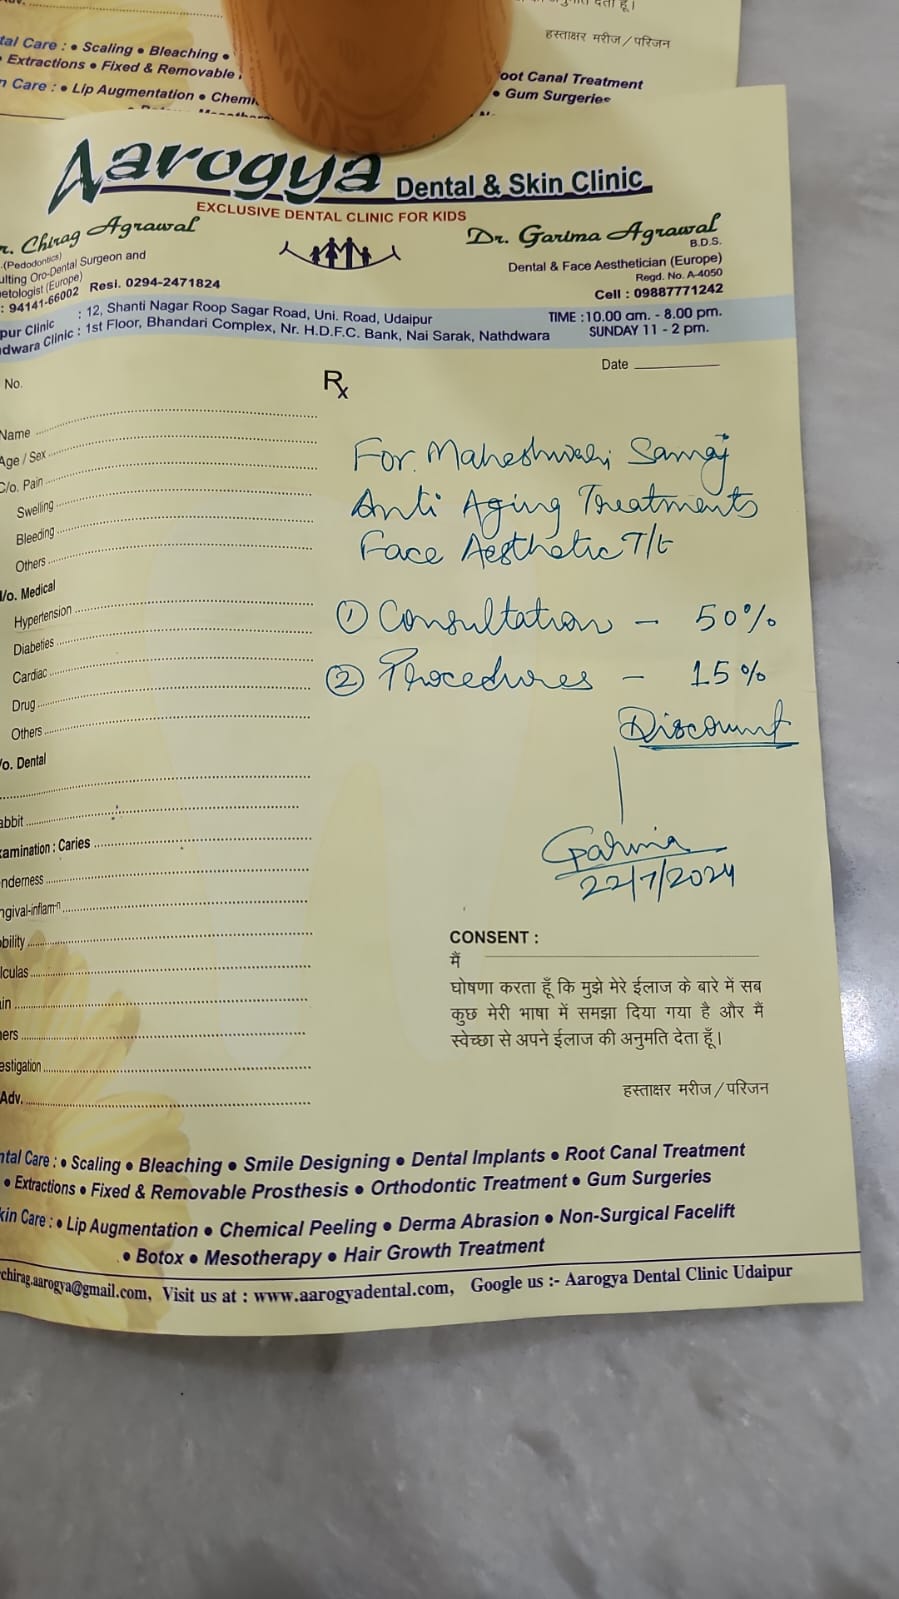 हस्ताक्षर मरीज / परिजन
tal Care : • Scaling • Bleaching •
• Extractions • Fixed & Removable
oot Canal Treatment
n Care : • Lip Augmentation • Chemi
• Gum Surgeries
Aarogya Dental & Skin Clinic
EXCLUSIVE DENTAL CLINIC FOR KIDS
r. Chirag Agrawal
(Pedodontics)
ulting Oro-Dental Surgeon and
etologist (Europe)
: 94141-66002 Resi. 0294-2471824
Dr. Garima Agrawal
B.D.S.
Dental & Face Aesthetician (Europe)
Regd. No. A-4050
Cell : 09887771242
pur Clinic : 12, Shanti Nagar Roop Sagar Road, Uni. Road, Udaipur
dwara Clinic : 1st Floor, Bhandari Complex, Nr. H.D.F.C. Bank, Nai Sarak, Nathdwara
TIME :10.00 am. - 8.00 pm.
SUNDAY 11 - 2 pm.
No.
Rx
Date
Name
Age / Sex
C/o. Pain
Swelling
Bleeding
Others
/o. Medical
Hypertension
Diabeties
Cardiac
Drug
Others
/o. Dental
abbit
amination : Caries
nderness
ngival-inflamn
obility
lculas
in
ers
estigation
Adv.
For Maheshwari Samaj
Anti Aging Treatments
Face Aesthetic T/t
① Consultation - 50%
② Procedures - 15%
Discount
Garima
22/7/2024
CONSENT :
मैं
घोषणा करता हूँ कि मुझे मेरे ईलाज के बारे में सब
कुछ मेरी भाषा में समझा दिया गया है और मैं
स्वेच्छा से अपने ईलाज की अनुमति देता हूँ।
हस्ताक्षर मरीज / परिजन
ntal Care : • Scaling • Bleaching • Smile Designing • Dental Implants • Root Canal Treatment
• Extractions • Fixed & Removable Prosthesis • Orthodontic Treatment • Gum Surgeries
kin Care : • Lip Augmentation • Chemical Peeling • Derma Abrasion • Non-Surgical Facelift
• Botox • Mesotherapy • Hair Growth Treatment
chirag.aarogya@gmail.com, Visit us at : www.aarogyadental.com, Google us :- Aarogya Dental Clinic Udaipur